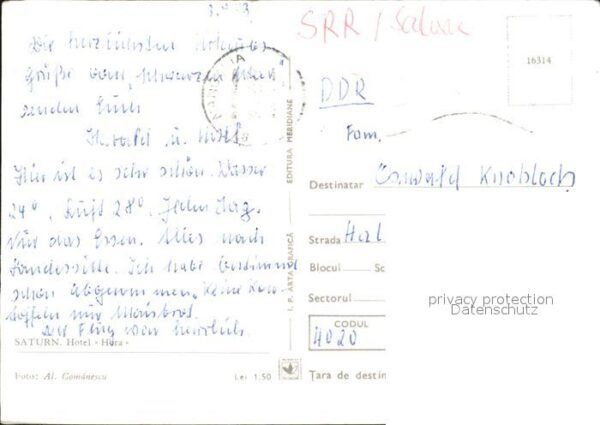 SRR / Saturn
Die herzlichsten Urlaubs
grüße vom "Schwarzen Meer"
senden Euch
Hier ist es sehr schön. Wasser
24°, Luft 28°. Jeden Tag.
Nur das Essen. Alles nach
Landessitte. Ich habe bestimmt
schon abgenommen, keine Kar-
toffeln nur Maisbrot.
Der Flug war herrlich.
SATURN. Hotel «Hora»
Foto: Al. Comănescu
Lei 1.50
I. P. ARTA GRAFICĂ
EDITURA MERIDIANE
16314
DDR
Fam.
Destinatar Oswald Knobloch
Strada
Blocul Sc
Sectorul
CODUL
4020
Țara de destin
privacy protection
Datenschutz